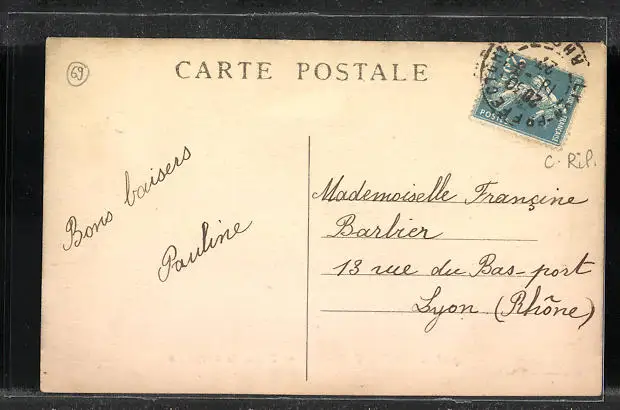 69
CARTE POSTALE
POSTES
C. Ril.
Bons baisers
Pauline
Mademoiselle Françine
Barbier
13 rue du Bas-port
Lyon (Rhône)